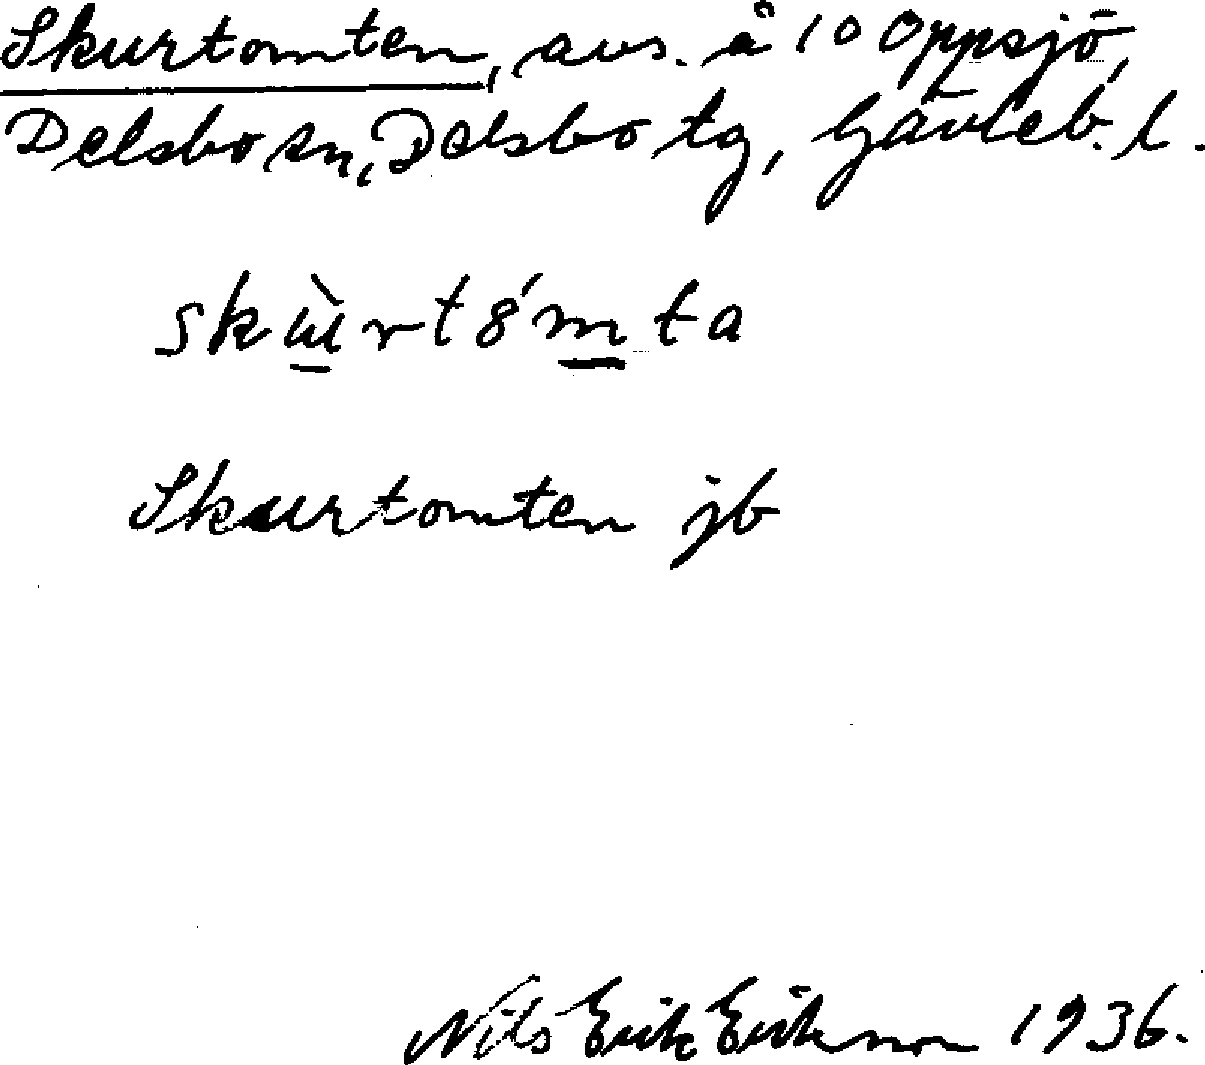 Skurtomten, avs. å 10 Oppsjö,
Delsbo sn, Delsbo tg, Gävleb. l.
skɯ̀rt8́mta
Skurtomten jb
Nils Erik Erikson 1936.